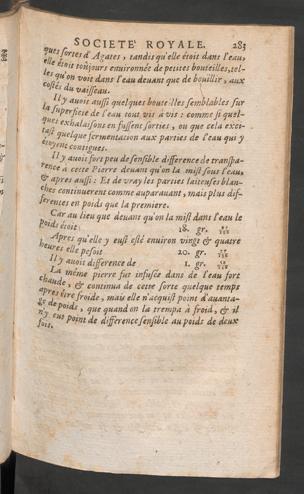 SOCIETE' ROYALE. 283
ques sortes d'Agates, tandis qu'elle étoit dans l'eau,
elle étoit toûjours environnée de petites bouteilles, tel-
les qu'on voit dans l'eau devant que de bouillir, aux
costés du vaisseau.
Il y avoit aussi quelques bouteilles semblables sur
la superficie de l'eau tout vis à vis : comme si quel-
ques exhalaisons en fussent sorties, ou que cela exci-
tast quelque fermentation aux parties de l'eau qui y
étoyent contigues.
Il y avoit fort peu de sensible difference de transpa-
rence à cette Pierre devant qu'on la mist sous l'eau,
& apres aussi : Et de vray les parties laiteuses blan-
ches continuerent comme auparavant, mais plus dif-
ferentes en poids que la premiere.
Car au lieu que devant qu'on la mist dans l'eau le
poids étoit 18. gr.
Apres qu'elle y eust esté environ vingt & quatre
heures elle pesoit 20. gr.
Il y avoit difference de 1. gr.
La méme pierre fut infusée dans de l'eau fort
chaude, & continua de cette sorte quelque temps
apres être froide, mais elle n'acquist point d'avanta-
ge de poids, que quand on la trempa à froid, & il
n'y eut point de difference sensible au poids de deux
fois.